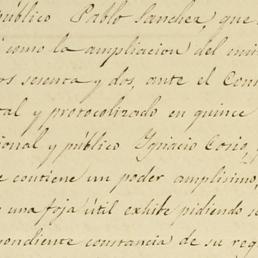 público Pablo Sanchez, que
como la ampliacion del mis
os sesenta y dos, ante el Con
tal y protocolizado en quince
ional y público Ignacio Cosio,
e contiene un poder amplisimo,
una foja útil exhibe pidiendo se
pondiente constancia) de su reg